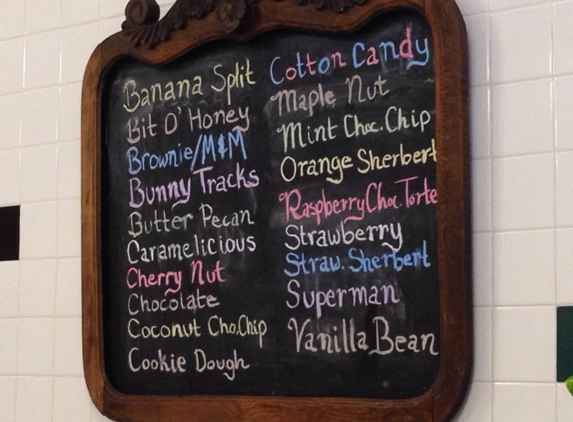 Banana Split
Bit O' Honey
Brownie/M&M
Bunny Tracks
Butter Pecan
Caramelicious
Cherry Nut
Chocolate
Coconut Cho.Chip
Cookie Dough
Cotton Candy
Maple Nut
Mint Choc. Chip
Orange Sherbert
Raspberry Choc. Torte
Strawberry
Straw. Sherbert
Superman
Vanilla Bean